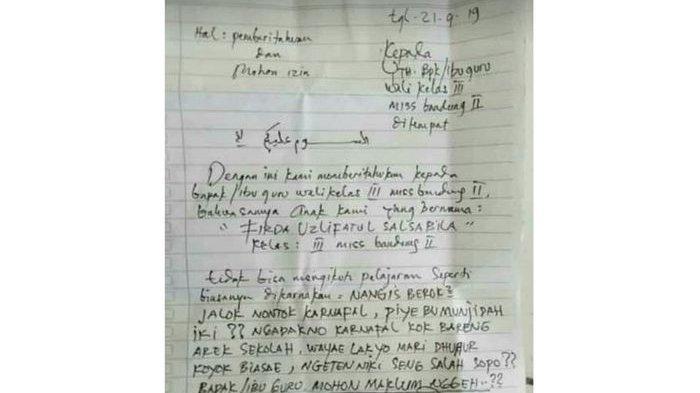 tgl-21-9-19
Hal: pemberitahuan
dan
Mohon izin
Kepada
YTH. Bpk/ibu guru
wali kelas III
MISS bandung II
ditempat
السلام عليكم
Dengan ini kami memberitahukan kepada
bapak/ibu guru wali kelas III miss bandung II,
bahwasannya anak kami yang bernama:
" FIRDA UZLIFATUL SALSABILA "
Kelas: III miss bandung II
tidak bisa mengikuti pelajaran seperti
biasanya dikarnakan = NANGIS BEROK²
JALOK NONTOK KARNAFAL, PIYE BU MUNJIDAH
IKI ?? NGADAKNO KARNAFAL KOK BARENG
AREK SEKOLAH, WAYAE LAK YO MARI DHUHUR
KOYOK BIASAE, NGETEN NIKI SENG SALAH SOPO??
BAPAK/IBU GURU MOHON MAKLUM NGGEH..??